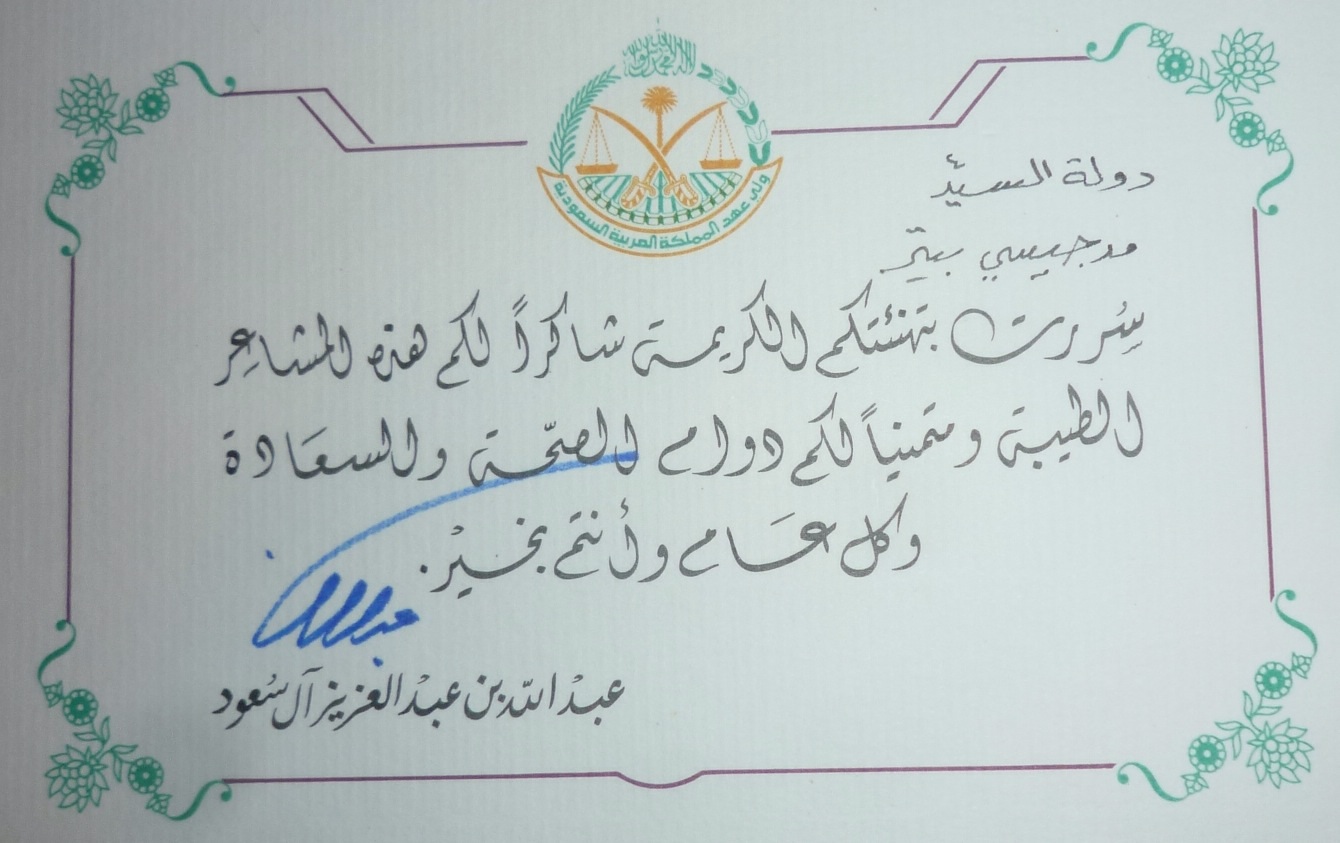 ولي عهد المملكة العربية السعودية
دولة السيّد
مدجيسي بيتر
سُررت بتهنئتكم الكريمة شاكراً لكم هذه المشاعِر
الطيبة ومتمنياً لكم دوام الصحّة والسعَادة
وكل عَام وأنتم بخيْر.
عبدالله
عبْد الله بن عبْد العزيز آل سُعود